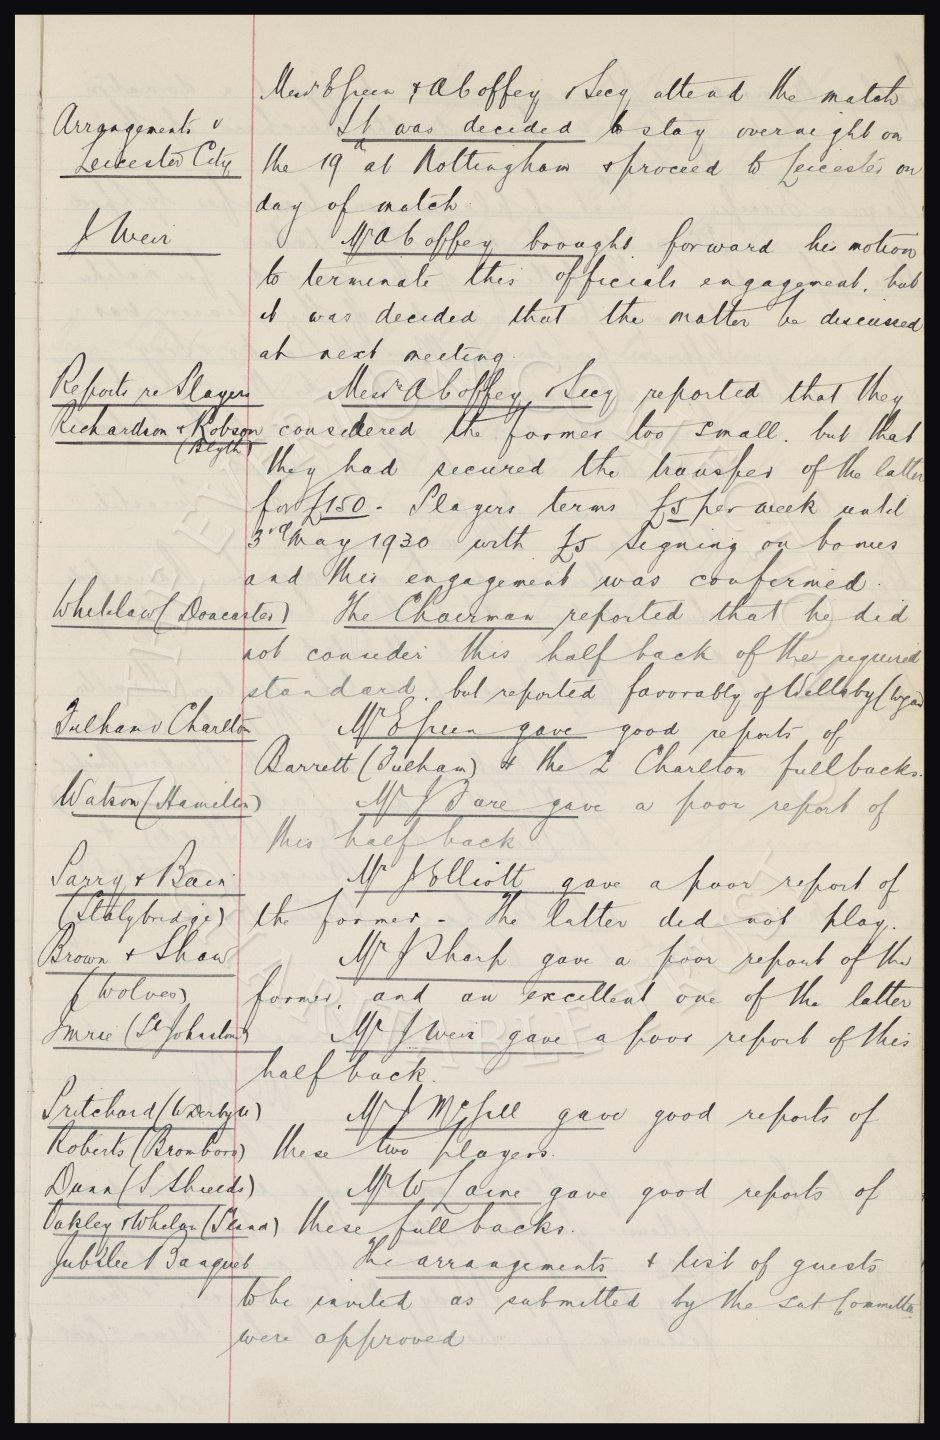 Messrs E Green & A Coffey & Secy attend the match
Arrangements v
Leicester City
It was decided to stay overnight on
the 19th at Nottingham & proceed to Leicester on
day of match.
J Weir
Mr A Coffey brought forward his motion
to terminate this officials engagement, but
it was decided that the matter be discussed
at next meeting.
Reports re Players
Richardson & Robson
(Blyth)
Messrs A Coffey, & Secy reported that they
considered the former too small. but that
they had secured the transfer of the latter
for £150 - Players terms £5 per week until
3rd May 1930 with £5 signing on bonus
and this engagement was confirmed.
Whitelaw (Doncaster)
The Chairman reported that he did
not consider this half back of the required
standard, but reported favorably of Wellsby (Wigan)
Fulham v Charlton
Mr E Green gave good reports of
Barrett (Fulham) & the 2 Charlton full backs.
Watson (Hamilton)
Mr J Fare gave a poor report of
this half back
Parry & Bain
(Stalybridge)
Mr J Elliott gave a poor report of
the former - The latter did not play.
Brown & Shaw
(Wolves)
Mr J Sharp gave a poor report of the
former, and an excellent one of the latter
Imrie (St Johnstone)
Mr J Weir gave a poor report of this
half back.
Pritchard (W Derby U)
Roberts (Bromboro)
Mr J McGill gave good reports of
these two players.
Dunn (S Shields)
Oakley & Whelan (S'land)
Mr W Laine gave good reports of
these full backs.
Jubilee Banquet
The arrangements & list of guests
to be invited as submitted by the sub Committee
were approved